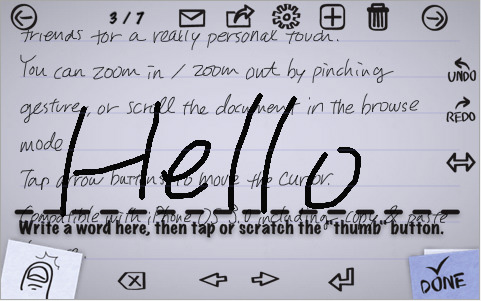 3 / 7
friends for a really personal touch.
You can zoom in / zoom out by pinching
UNDO
gesture, or scroll the document in the browse
REDO
mode
Hello
Tap arrow buttons to move the cursor.
Compatible with iPhone OS 3.0 including copy & paste
Write a word here, then tap or scratch the "thumb" button.
DONE